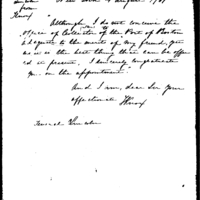 from
Knox
New York 4 August 1789
"Although I do not conceive the
office of Collector of the Port of Boston
adequate to the merits of my friend, yet
as is the best thing that can be offer
ed at present, I sincerely congratulate
you on the appointment."
And I am, dear Sir your
affectionate HKnox
General Lincoln